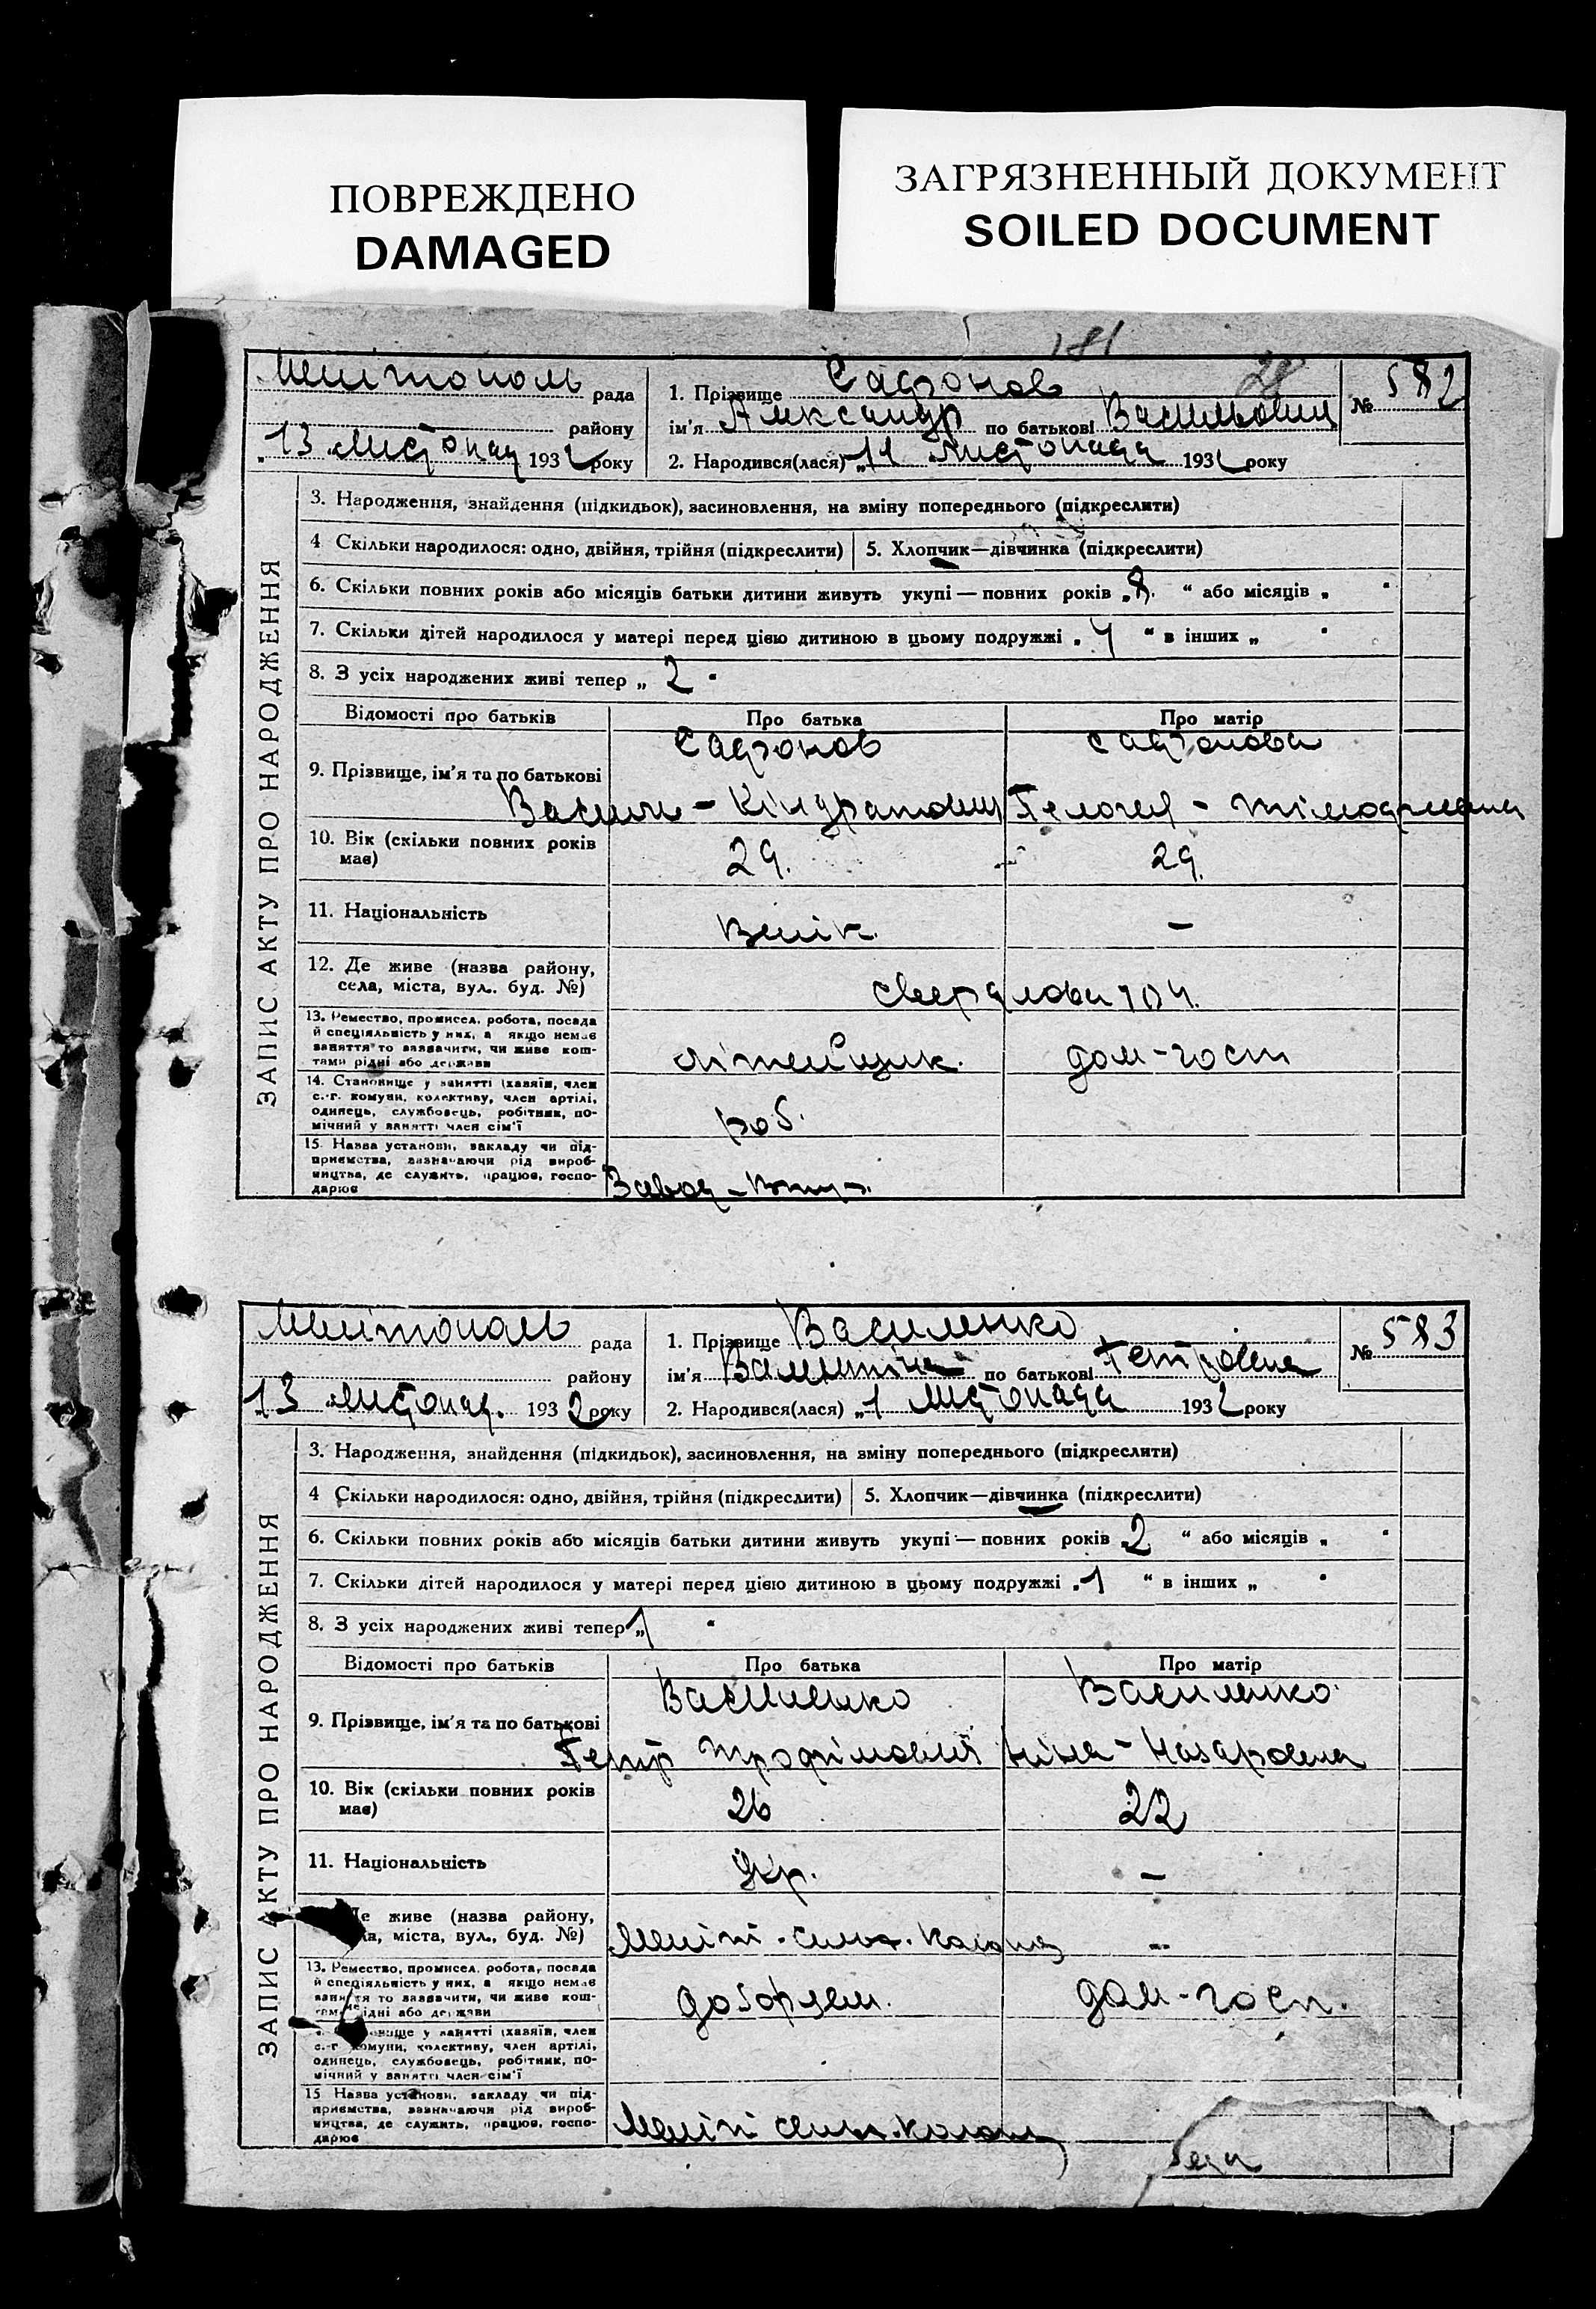 ПОВРЕЖДЕНО
DAMAGED
ЗАГРЯЗНЕННЫЙ ДОКУМЕНТ
SOILED DOCUMENT
181
28
Мелітополь рада
району
13 Листопад 1932 року
1. Прізвище Сафронов
ім'я Александр по батькові Васильович
2. Народився(лася) „11 листопада 1932 року
№ 582
ЗАПИС АКТУ ПРО НАРОДЖЕННЯ
3. Народження, знайдення (підкидьок), засиновлення, на зміну попереднього (підкреслити)
4 Скільки народилося: одно, двійня, трійня (підкреслити) 5. Хлопчик—дівчинка (підкреслити)
6. Скільки повних років або місяців батьки дитини живуть укупі — повних років „8 “ або місяців „ “
7. Скільки дітей народилося у матері перед цією дитиною в цьому подружжі „4 “ в інших „ “
8. З усіх народжених живі тепер „ 2 “
Відомості про батьків Про батька Про матір
9. Прізвище, ім'я та по батькові
Сафронов Сафронова
Василь - Кіндратович Пелагея - Тімофеевна
10. Вік (скільки повних років має) 29. 29
11. Національність Велік. -
12. Де живе (назва району, села, міста, вул. буд. №) Свердлова 104.
13. Ремество, промисел, робота, посада
й спеціяльність у них, а якщо немає
заняття то зазначити, чи живе кош-
тами рідні або держави
літейщик. дом-госп
14. Становище у занятті (хазяїн, член
с.-г. комуни, колективу, член артілі,
одинець, службовець, робітник, по-
мічний у занятті член сім'ї
роб.
15. Назва установи, закладу чи під-
приємства, зазначаючи рід вироб-
ництва, де служить, працює, госпо-
дарює
Завод
Мелітополь рада
району
13 листопад. 1932 року
1. Прізвище Василенко
ім'я Валентіна по батькові Петровна
2. Народився(лася) „1 Листопада 1932 року
№ 583
ЗАПИС АКТУ ПРО НАРОДЖЕННЯ
3. Народження, знайдення (підкидьок), засиновлення, на зміну попереднього (підкреслити)
4 Скільки народилося: одно, двійня, трійня (підкреслити) 5. Хлопчик—дівчинка (підкреслити)
6. Скільки повних років або місяців батьки дитини живуть укупі — повних років „2 “ або місяців „ “
7. Скільки дітей народилося у матері перед цією дитиною в цьому подружжі „1 “ в інших „ “
8. З усіх народжених живі тепер „1 “
Відомості про батьків Про батька Про матір
9. Прізвище, ім'я та по батькові
Василенко Василенко
Петр Трофімович Ніна - Назаровна
10. Вік (скільки повних років має) 26 22
11. Національність Укр. -
Де живе (назва району, міста, вул., буд. №) Меліт. -
13. Ремество, промисел, робота, посада
й спеціяльність у них, а якщо немає
заняття то зазначити, чи живе кош-
рідні або держави
дом-госп.
у занятті (хазяїн, член
с.-г комуни, колективу, член артілі,
одинець, службовець, робітник, по-
мічний у занятті член сім'ї
15 Назва установи, закладу чи під-
приємства, зазначаючи рід вироб-
ництва, де служить, працює, госпо-
дарює
Меліт